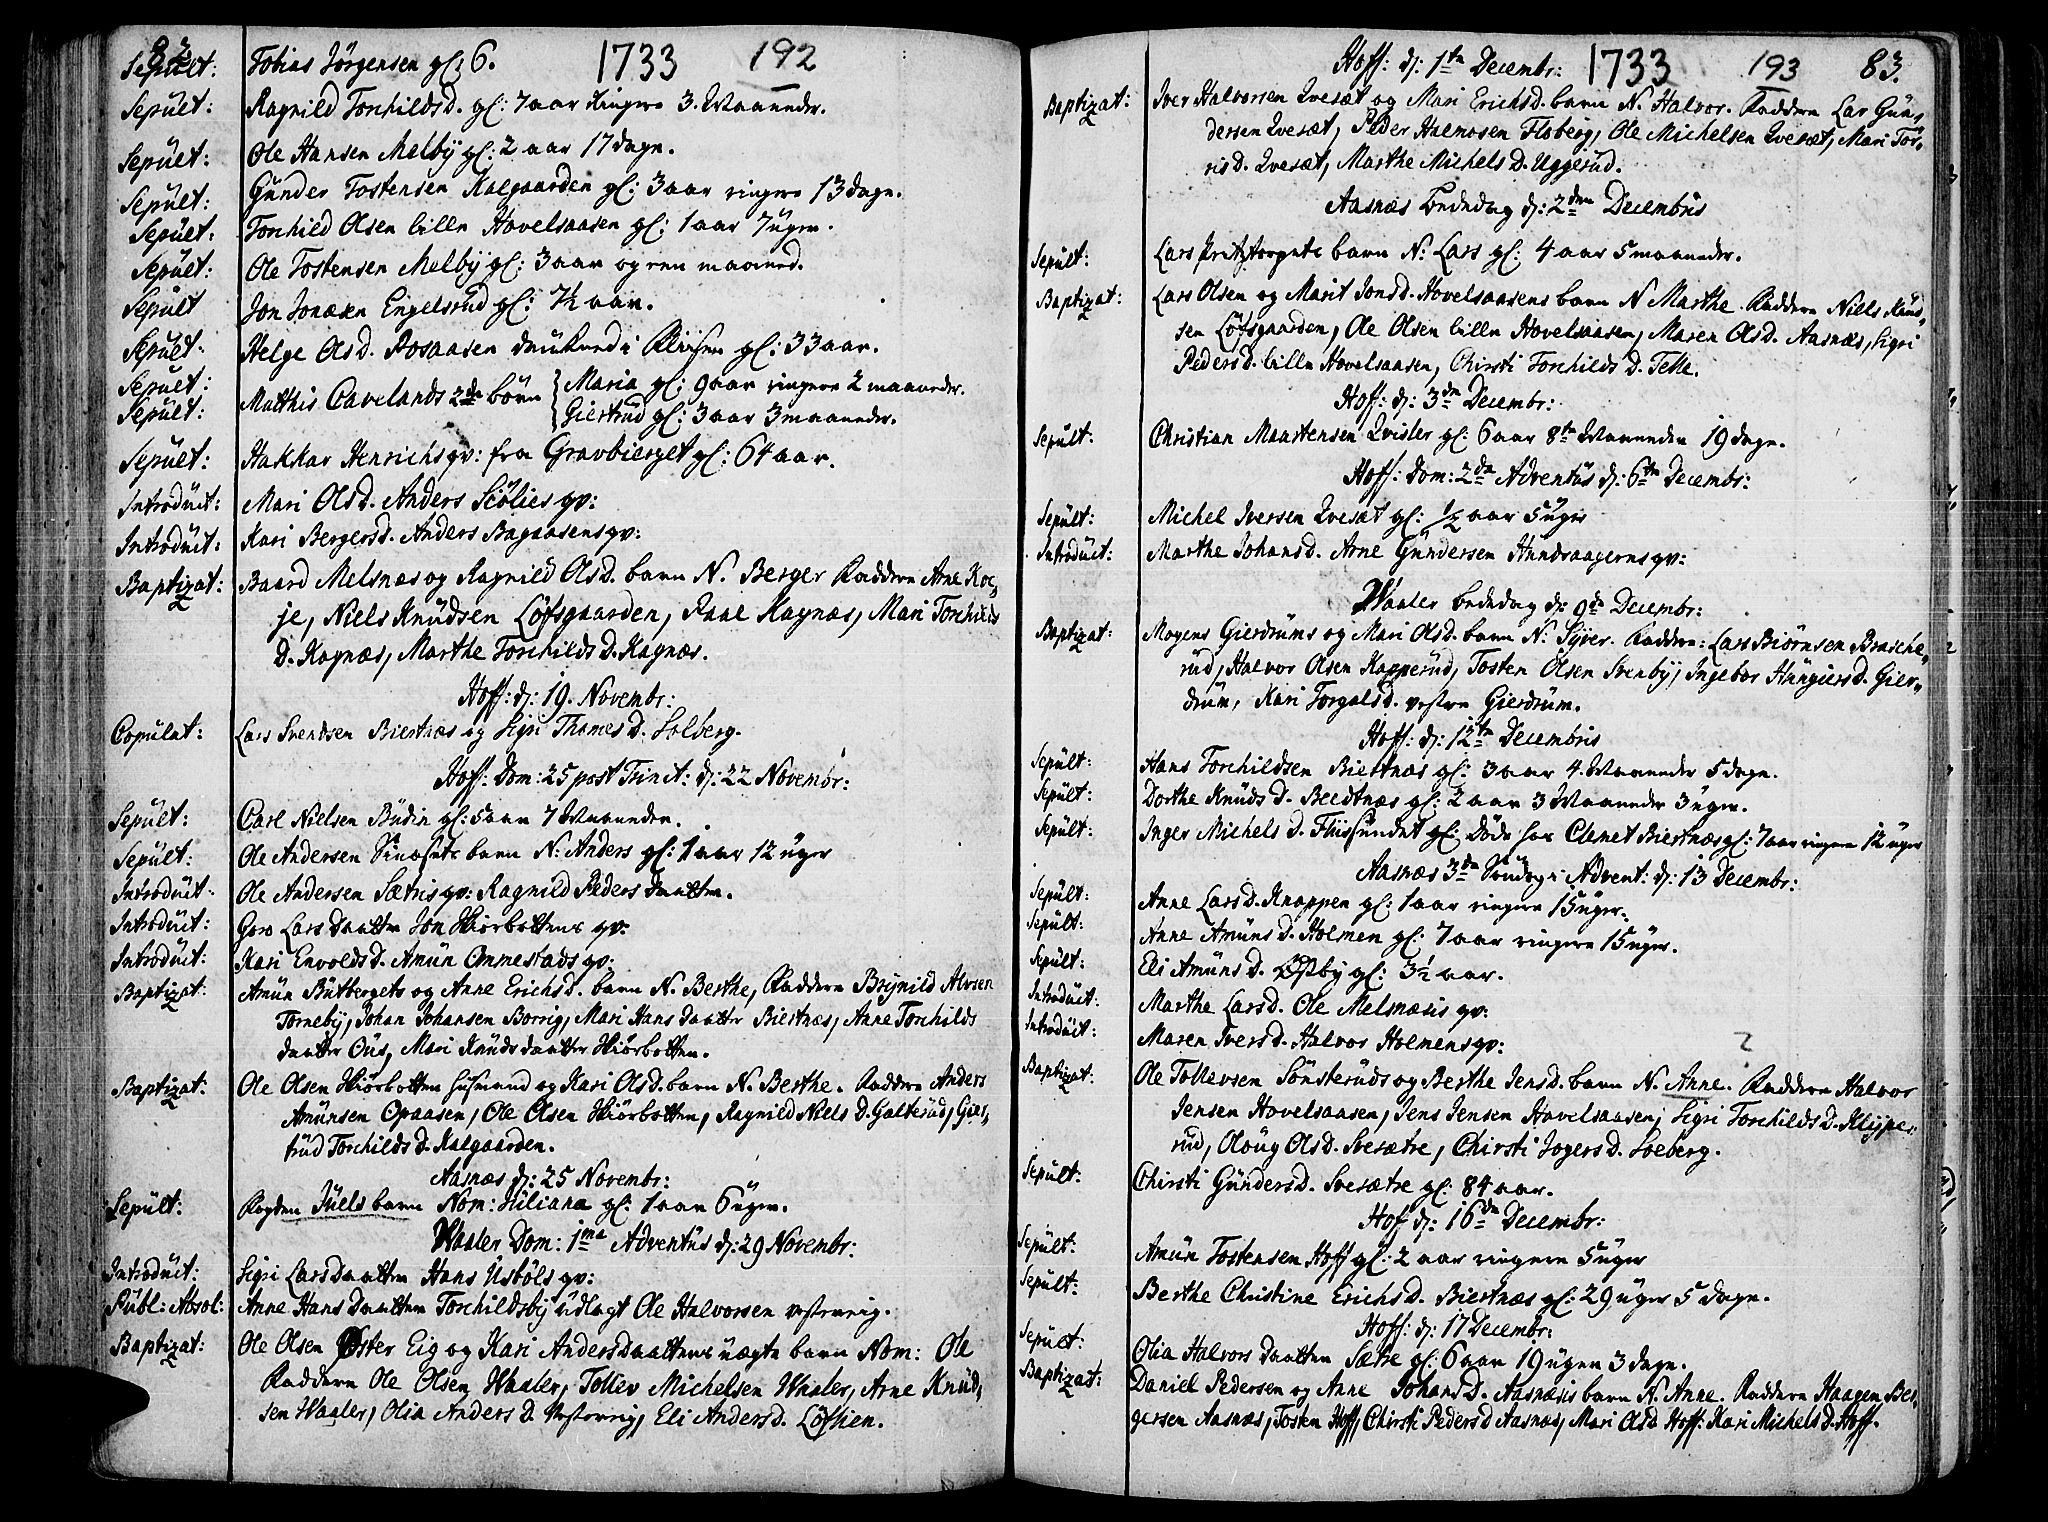 82
1733
192
Sepult: Tobias Jörgensen gl: 6.
Sepult: Ragnild Torchildsd. gl: 7 aar ringere 3. Maaneder.
Sepult: Ole Hansen Melbÿ gl: 2 aar 17 dage.
Sepult: Gunder Tostensen Kalgaarden gl: 3 aar ringere 13 dage.
Sepult: Torchild Olsen lille Hovelsaasen gl: 1 aar 7 uger.
Sepult: Ole Tostensen Melbÿ gl: 3 aar og een maaned.
Sepult Jon Jonæsen Engelsrud gl: 7½ aar.
Sepult: Helge Olsd. Rosaasen druknede i Kliisen gl: 33 aar.
Sepult: Matthis Cavelands 2de börn { Maria gl: 9 aar ringere 2 maaneder.
Sepult: Giertrud gl: 3 aar 3 maaneder.
Sepult: Hakkar Henrichs qv: fra Gravbierget gl: 64 aar.
Introduct: Mari Olsd. Anders Sciölies qv:
Introduct: Kari Bergersd. Anders Bagaasens qv:
Baptizat: Baard Melsnæs og Ragnild Olsd. barn N. Berger Faddere Arne Kol-
je, Niels Knudsen Löfsgaarden, Paal Kagnæs, Mari Torchilds
D. Kagnæs, Marthe Torchilds D. Kagnæs.
Hoff: d: 19. Novembr:
Copulat: Lars Svendsen Biertnæs og Sigri Thomes D. Solberg.
Hoff: Dom: 25 post Trinit: d: 22 Novembr:
Sepult: Carl Nielsen Budin gl: 5 aar 7 Maaneder.
Sepult: Ole Andersen barn N: Anders gl: 1 aar 12 uger
Introduct: Ole Andersen Sætris qv: Ragnild Peders daatter.
Introduct: Goro Lars Daatter Jon Kiörbottens qv:
Introduct: Kari Envoldsd. Amun Ommestads qv:
Baptizat: Amun Butbergets og Anne Erichsd. barn N. Berthe, Faddere Brÿnild Alvsen
Tornebÿ, Johan Johansen Borrig, Mari Hans daatter Biertnæs, Anne Torchilds
daatter Ous, Mari Knuds daatter Kiörbotten.
Baptizat: Ole Olsen Kiörbotten husmand og Kari Olsd. barn N. Berthe. Faddere Anders
Amunsen Opaasen, Ole Olsen Kiörbotten, Ragnild Niels D. Galterud, Gier-
trud Torchilds D. Kalgaarden.
Aasnæs d: 25 Novembr:
Sepult: Fogden Juels barn Nom: Juliana gl: 1 aar 6 uger.
Waaler Dom: 1ma Adventus d: 29 Novembr:
Introduct: Sigri Lars Daatter Hans Usböls qv:
Publ: Absol: Anne Hans Daatter Torchildsbÿ udlagt Ole Halvorsen
Baptizat: Ole Olsen Öster Eig og Kari Anders Daatters uægte barn Nom: Ole
Faddere Ole Olsen Waaler, Tollev Michelsen Waaler, Arne Knud-
sen Waaler, Olia Anders D. Eli Andersd. Löfsien.
Hoff: d: 1te Decembr: 1733 193 83.
Baptizat: Iver Halvorsen Qvesæt og Mari Erichsd. barn N. Halvor. Faddere Lar Gun-
dersen Qvesæt, Peder Halmosen Floberg, Ole Michelsen Qvesæt, Mari Tor-
ris D. Qvesæt, Marthe Michels D. Uggerud.
Aasnæs bededag d: 2den Decembris
Sepult: Lars barn N. Lars gl: 4 aar 5 maaneder.
Baptizat: Lars Olsen og Marit Jonsd. Hovelsaasens barn N Marthe. Faddere Niels Knud-
sen Löfsgaarden, Ole Olsen lille Hovelsaasen, Maren Olsd. Aasnæs, Sigri
Pedersd. lille Hovelsaasen, Chirsti Torchilds D. Telle.
Hoff: d: 3de Decembr:
Sepult: Christian Maartensen Qvisler gl: 6 aar 8te Maaneder 19 dage.
Hoff: Dom: 2da Adventus d: 6te Decembr:
Sepult: Michel Iversen Qvesæt gl: ½ aar 5 uger
Introduct: Marthe Johansd. Arne Gundersen Hundsaagerns qv:
Waaler bededag d: 9de Decembr:
Baptizat: Mogens Gierdrums og Mari Olsd. barn N: Syver. Faddere: Lars Biörnsen Brasche-
rud, Halvor Olsen Kapperud, Tosten Olsen Svenbÿ, Ingebor Hungiersd. Gier-
drum, Kari Torgalsd. vestre Gierdrum.
Hoff: d: 12te Decembris
Sepult: Hans Torchildsen Biertnæs gl: 3 aar 4 Maaneder 5 dage.
Sepult: Dorthe Knuds D. Beedtnæs gl: 2 aar 3 Maaneder 3 uger.
Sepult: Inger Michels D. Fliisundet gl: döde hos Clemet Biertnæs gl: 7 aar ringere 12 uger
Aasnæs 3de Söndag i Advent: d: 13 Decembr:
Sepult: Anne Larsd. Knappen gl: 1 aar ringere 15 uger.
Sepult: Anne Amuns D. Holmen gl: 7 aar ringere 15 uger.
Sepult: Eli Amuns D. Östbÿ gl: 3½ aar.
Introduct: Marthe Larsd. Ole Melsnæsis qv:
Introduct: Maren Iversd. Halvor Holmens qv:
Baptizat: Ole Tollevsen Sönsteruds og Berthe Jensd. barn N. Anne. Faddere Halvor
Jensen Hovelsaasen, Jens Jensen Hovelsaasen, Sigri Torchilds D. Klÿpe-
rud, Oloug Olsd. Svesætre, Chirsti Jogers D. Soeberg.
Sepult: Chirsti Gundersd. Svesætre gl: 84 aar.
Hof d: 16de Decembr:
Sepult: Amun Tostensen Hoff gl: 2 aar ringere 5 uger
Sepult: Berthe Christine Erichs D. Biertnæs gl: 29 uger 5 dage.
Hoff: d: 17 Decembr:
Sepult: Olia Halvors daatter Sætre gl: 6 aar 19 uger 3 dage.
Baptizat: Daniel Pedersen og Anne Johans D. Aasnæsis barn N. Anne. Faddere Haagen Ber-
gersen Aasnæs, Tosten Hoff, Chirsti Pedersd Aasnæs, Mari Olsd Hoff: Kari Michels D. Hoff.